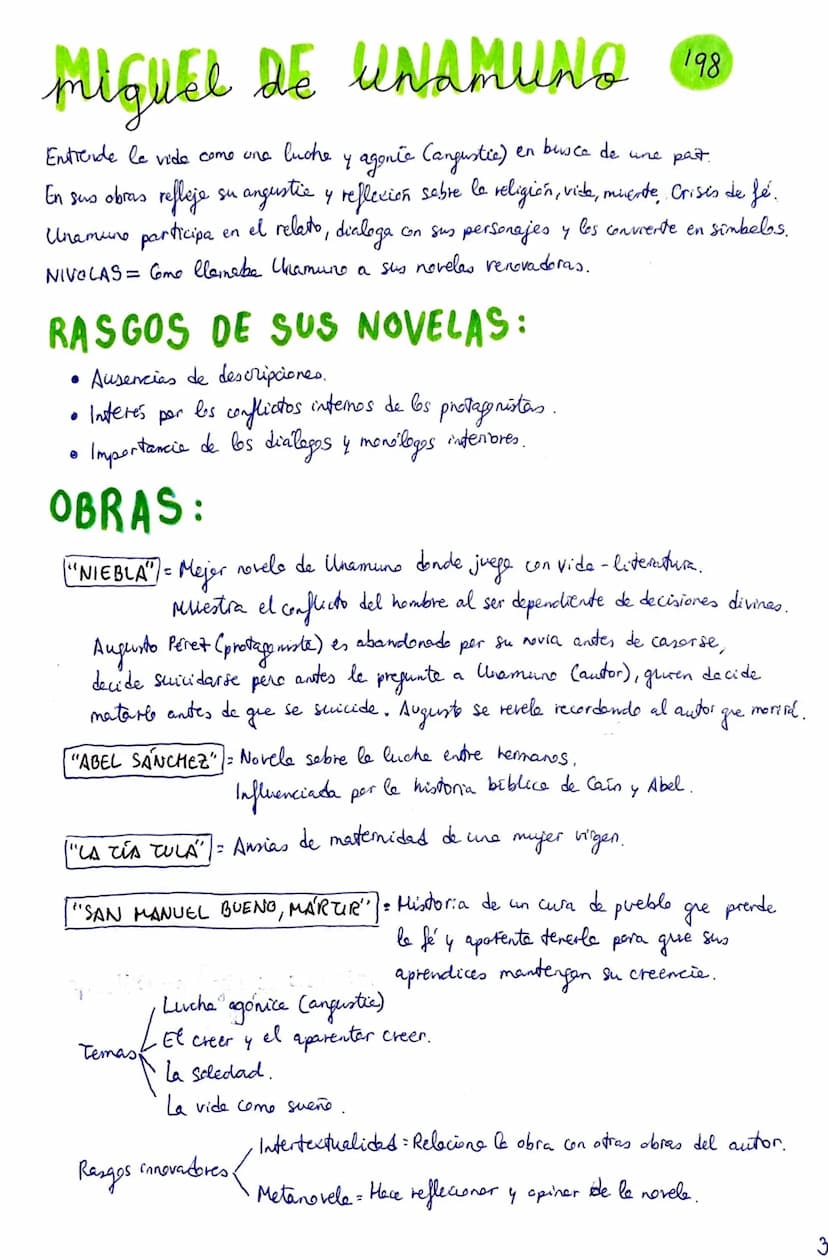 MIGUEL DE UNAMUNO
miguel de unamuno
'98
Entiende la vida como una lucha y agonía (angustia) en busca de una paz.
En sus obras refleja su angustia y reflexión sobre la religión, vida, muerte. Crisis de fé.
Unamuno participa en el relato, dialoga con sus personajes y los convierte en símbolos.
NIVOLAS = Como llamaba Unamuno a sus novelas renovadoras.
RASGOS DE SUS NOVELAS:
• Ausencias de descripciones.
• Interés por los conflictos internos de los protagonistas.
• Importancia de los diálogos y monólogos interiores.
OBRAS:
"NIEBLA" = Mejor novela de Unamuno donde juega con vida-literatura.
Muestra el conflicto del hombre al ser dependiente de decisiones divinas.
Augusto Pérez (protagonista) es abandonado por su novia antes de casarse,
decide suicidarse pero antes le pregunta a Unamuno (autor), quien decide
matarlo antes de que se suicide. Augusto se revela recordando al autor que morirá.
"ABEL SÁNCHEZ" = Novela sobre la lucha entre hermanos.
Influenciada por la historia bíblica de Caín y Abel.
"LA TÍA TULA" = Ansias de maternidad de una mujer virgen.
"SAN MANUEL BUENO, MÁRTIR" = Historia de un cura de pueblo que pierde
la fé y aparenta tenerla para que sus
aprendices mantengan su creencia.
Temas
Lucha agónica (angustia)
El creer y el aparentar creer.
La soledad.
La vida como sueño.
Rasgos innovadores
Intertextualidad = Relaciona la obra con otras obras del autor.
Metanovela = Hace reflexionar y opinar de la novela.
3